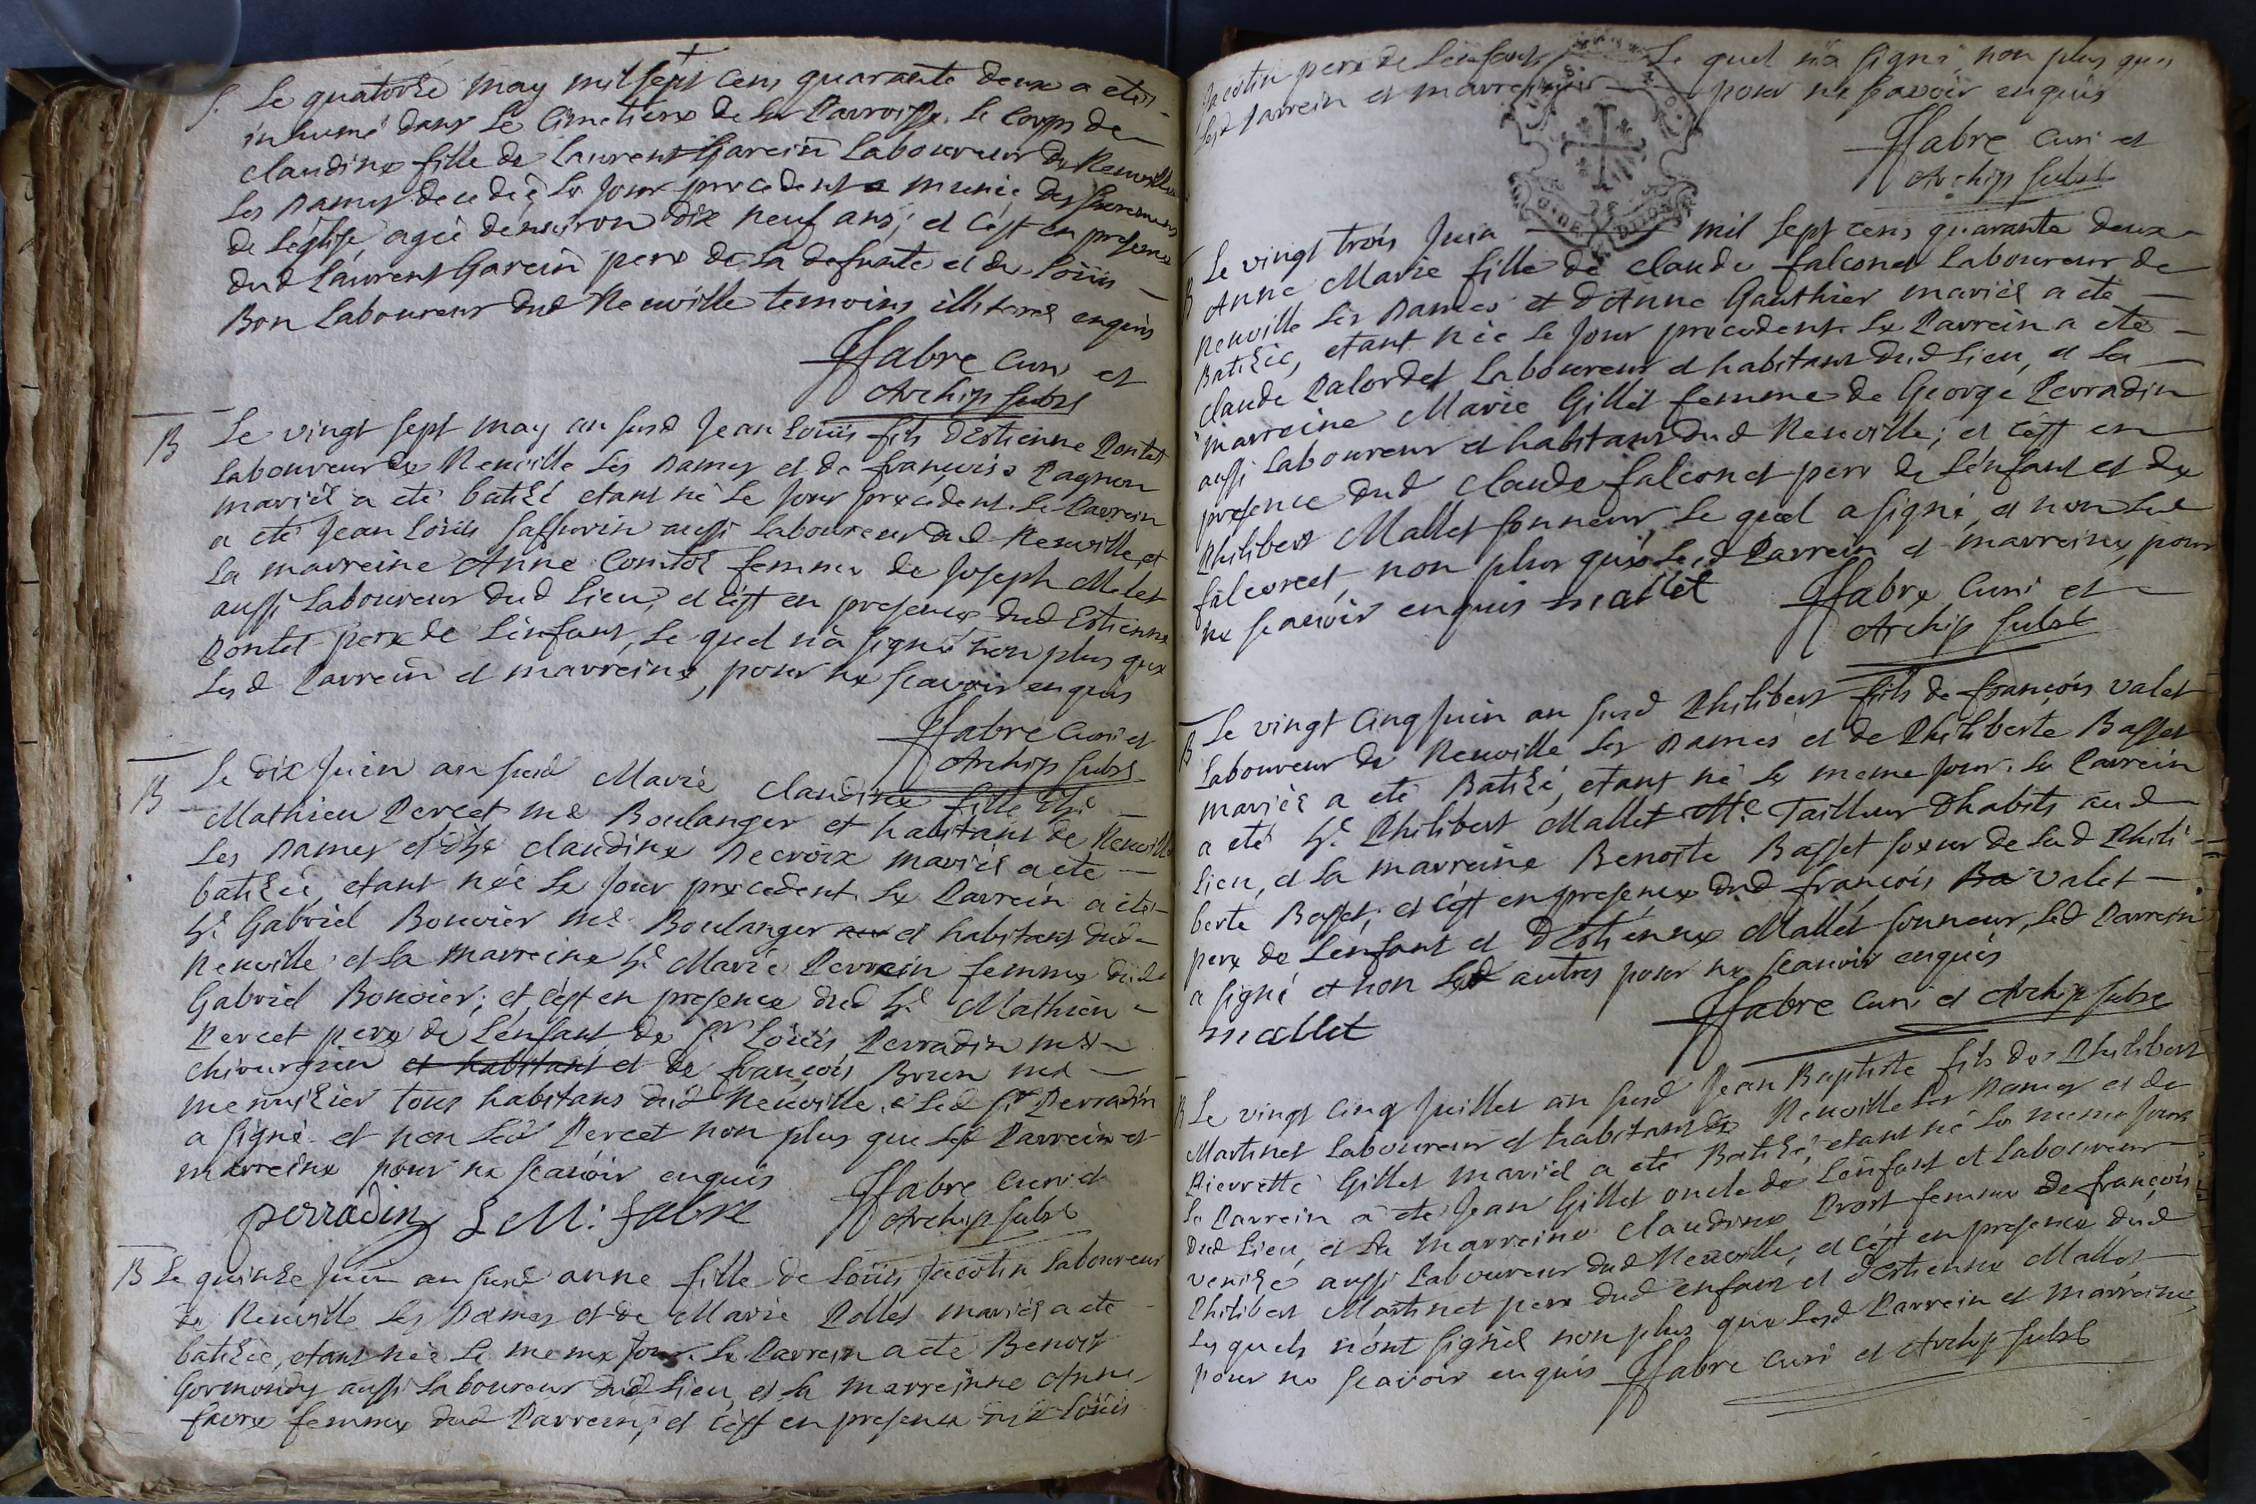 S. Le quatorze may mil sept cens quarante deux a eté
inhumé dans le Cimetiere de la Parroisse le corps de
claudine fille de Laurent Garein Laboureur de Neuville
Les Dames decedée le jour precedent munie des sacremens
de L'église, agée d'environ dix neuf ans; et c'est en presence
dud Laurent Garein pere de la defunte et de Loüis
Bon Laboureur dud Neuville temoins illiterés enquis
ffabre Curé et
Archip subst
B Le vingt sept may an susd Jean Loüis fils d'Estienne Pontet
Laboureur de Neuville Les Dames et de françoise Pagnon
mariés a eté batizé etant né le jour precedent. Le Parrein
a eté Jean Loüis Saffurin aussi Laboureur dud Neuville, et
La marreine Anne Comtet femme de Joseph Melet
aussi Laboureur dud Lieu, et c'est en presence dud Estienne
Pontet pere de L'enfant, Le quel n'a signé non plus que
Lesd Parrein et marreine, pour ne scavoir enquis
ffabre Curé et
Archip subst
B Le dix Juin an susd Marie Claudine fille d'he
Mathieu Percet me Boulanger et habitant de Neuville
Les Dames et d'he claudine Decroix mariés a eté
batizée, etant née Le jour precedent. Le Parrein a eté
h.e Gabriel Bouvier me Boulanger et habitant dud
Neuville et La marreine h.e Marie Perrein femme dud
Gabriel Bouvier; et c'est en presence dud h.e Mathieu
Percet pere de L'enfant, de Sr Loüis Perradin me
chirurgien et habitant et de françois Brun me
menuizier tous habitans dud Neuville. Led Sr Perradin
a signé et non Led Percet non plus que Lesd Parrein et
marreine pour ne scavoir enquis
ffabre Curé et
perradin L M: fabre Archip subst
B Le quinze Juin an susd anne fille de Loüis Jacotin Laboureur
de Neuville Les Dames et de Marie Pollet mariés a eté
batizée, etant née Le meme jour. Le Parrein a eté Benoit
Gormondy aussi Laboureur dud Lieu, et La marreinne Anne
favre femme dud Parrein, et c'est en presence dud Loüis
Jacotin pere de L'enfant Le quel n'a signé non plus que
Lesd Parrein et marreine pour ne scavoir enquis
ffabre Curé et
Archip subst
B Le vingt trois Juin mil sept cens quarante deux
Anne Marie fille de claude falconet Laboureur de
Neuville Les Dames et d'Anne Gauthier mariés a eté
Batizée, etant née Le jour precedent. Le Parrein a eté
claude Palordet Laboureur et habitant dud Lieu, et La
marreine Marie Gillet femme de George Perradin
aussi Laboureur et habitant dud Neuville; et c'est en
presence dud claude falconet pere de L'enfant et de
Philibert Mallet sonneur Le quel a signé, et non Led
falconet, non plus que Lesd Parrein et marreine, pour
ne scavoir enquis mallet ffabre Curé et
Archip subst
B Le vingt cinq Juin an susd Philibert fils de françois valet
Laboureur de Neuville Les Dames et de Philiberte Basset
mariés a eté Batizé, etant né Le meme jour. Le Parrein
a eté h.e Philibert Mallet Me Tailleur d'habits aud
Lieu, et La marreine Benoite Basset soeur de Lad Phili-
berte Basset; et c'est en presence dud françois Ba valet
pere de L'enfant et d'Estienne Mallet sonneur, Led Parrein
a signé et non Lesd autres pour ne scavoir enquis
ffabre Curé et Archip subst
mallet
B Le vingt cinq Juillet an susd Jean Baptiste fils de Philibert
Martinet Laboureur et habitant de Neuville Les Dames et de
Pierrette Gillet mariés a eté Batizé, etant né Le meme jour
Le Parrein a eté Jean Gillet oncle de L'enfant et Laboureur
Dud Lieu, et La marreine claudine Prost femme de françois
venizé aussi Laboureur dud Neuville; et c'est en presence dud
Philibert Martinet pere dud enfant et d'Estienne Mallet
Les quels n'ont signés non plus que Lesd Parrein et marreine,
pour ne scavoir enquis ffabre Curé et Archip subst